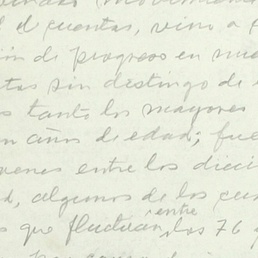 d cuentas, vino a
ón de progreso en nue
tas sin distingo de
s tanto los mayores
n años de edad; fue
venes entre los dieci
d, algunos de los cua
s que fluctúan entre los 76 y